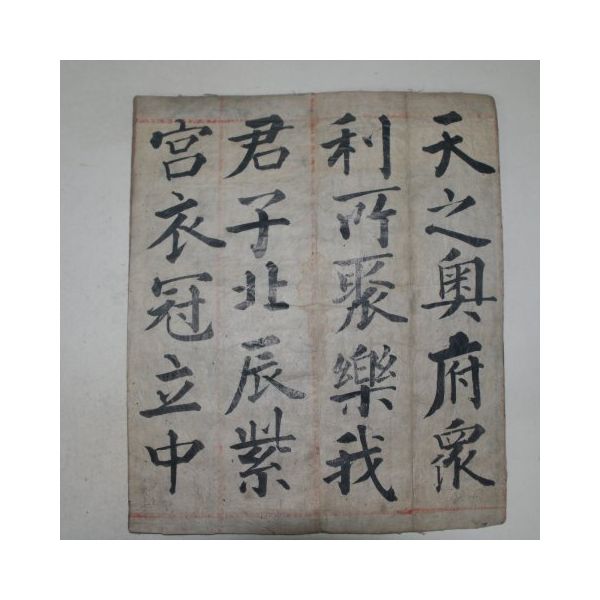 天之奧府衆
利所聚樂我
君子北辰紫
宮衣冠立中